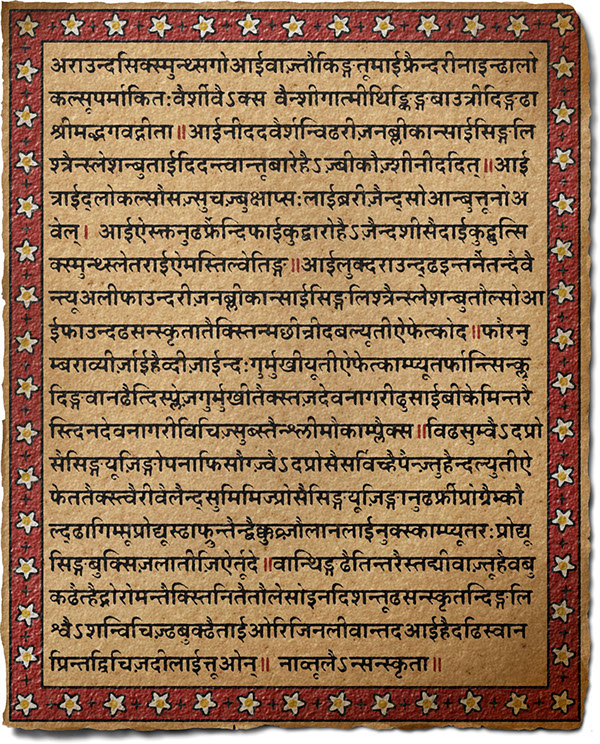 अराउन्दसिक्स्मुन्थ्सगोआईवाज़्तौकिङ्गतूमाईफ्रैन्दरीनाइन्ढालो
कल्सूपर्माकितःवैर्शीवैऽक्स वैन्शीगात्मीथिङ्किङ्गबाउत्रीदिङ्गढा
श्रीमद्भगवद्गीता॥आईनीददवैर्शन्विढरीज़नब्लीकान्साईसिङ्गलि
श्त्रैन्स्लेशन्बुताईदिदन्त्वान्तूबारेहैऽज़्बीकौज़्शीनीददित्॥आई
त्राईद्लोकल्सौसज़्सुचज़्बुक्षाप्सःलाईब्ररीज़ैन्द्सोआन्बुत्तूनोअ
वेल्। आईऐस्क्तनुढर्फ्रैन्दिफाईकुद्बारोहैऽज़ैन्दशीसैदाईकुद्बुत्सि
क्स्मुन्थ्स्लेतराईऐमस्तिल्वेतिङ्ग॥आईलुक्दराउन्द्ढइन्तर्नैतन्दैवै
न्त्यूअलीफाउन्दरीज़नब्लीकान्साईसिङ्गलिश्त्रैन्स्लेशन्बुतौल्सोआ
ईफाउन्दढसन्स्कृतातैक्स्तिन्मछीन्रीदबल्यूतीऐफेत्कोद॥फौरनु
म्बराव्यीर्ज़ाईहैव्दीज़ाईन्दःगुर्मुखीयूतीऐफेत्काम्प्यूतर्फान्त्सिन्क्लू
दिङ्गवानढैत्दिस्प्लेज़गुर्मुखीतैक्स्तज़देवनागरीढुसाईबीकेमिन्तरै
स्त्दिनदेवनागरीविचिज़्सुब्स्तैन्श्लीमोकाम्प्लैक्स॥विढसुम्वैऽदप्रो
सैसिङ्गयूज़िङ्गोपनाफिसौर्ग्ज़्वैऽदप्रोसैसर्विच्हैपैन्ज़्तुहैन्दल्युतीऐ
फेततैक्स्त्वैरीवेलैन्द्सुमिमिज्प्रोसैसिङ्गयूज़िङ्गानुढर्फ्रीप्रोग्रैम्कौ
ल्द्ढागिम्सूप्रोद्यूस्ढाफ्रुन्तैन्द्बैक्कुव्र्ज़ौलानलाईनुक्स्काम्प्यूतरःप्रोद्यू
सिङ्गबुक्सिज़लातीज़िऐर्तूदे॥वान्थिङ्गढैतिन्तरैस्तद्मीवाज़्तूहैवबु
कढैत्हैद्रोरोमन्तैक्स्तिनितैतौलेसोइनदिशन्तूढसन्स्कृतन्दिङ्गलि
श्वैऽशन्विचिज़्ढबुक्ढैताईओरिजिनलीवान्तदआईहैदढिस्वान
प्रिन्तद्विचिज़दीलाईत्तूओन्॥ नाव्तूलैऽन्सन्स्कृता॥